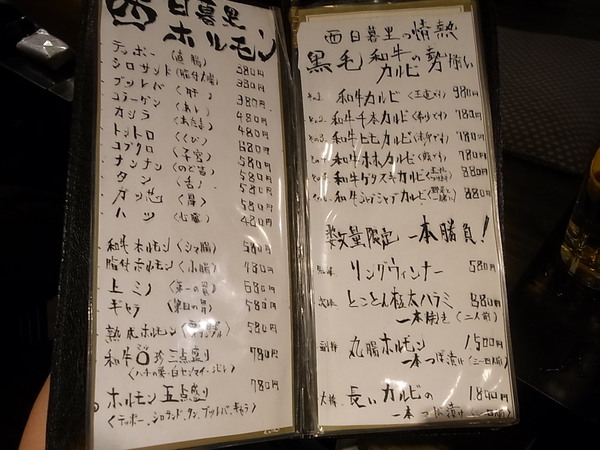 西日暮里
ホルモン
テッポー（直腸） 380円
シロ 380円
380円
コラーゲン 380円
カシラ（あたま） 480円
トントロ（くび） 480円
コブクロ（子宮） 580円
ナンナン（のど笛） 580円
タン（舌） 580円
ガツ芯（胃） 580円
ハツ（心臓） 480円
和牛ホルモン（シマ腸） 580円
脂付ホルモン（小腸） 480円
上ミノ（第一の胃） 680円
ギャラ（第四の胃） 580円
ホルモン 580円
和牛 珍三点盛り 780円
ホルモン五点盛り 780円
西日暮里の情熱
黒毛和牛の
カルビ勢揃い
和牛カルビ（王道です） 980円
和牛千本カルビ 780円
和牛ヒモカルビ 780円
和牛 カルビ 780円
和牛ゲタスキカルビ 880円
和牛シャブシャブカルビ 880円
数量限定 一本勝負！
リングウィンナー 580円
とことん極太ハラミ 880円
一本焼き（二人前）
丸腸ホルモン 1500円
一本つぼ漬け（三〜四人前）
長いカルビの 1800円
一本つぼ漬け